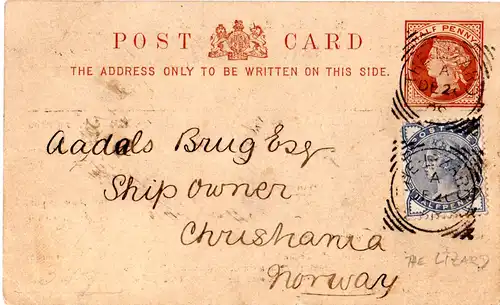 HALF PENNY
POST CARD
THE ADDRESS ONLY TO BE WRITTEN ON THIS SIDE.
POSTAGE
HALFPENNY
Aadals Brug Esq
Ship owner
Christiania
Norway
THE LIZARD